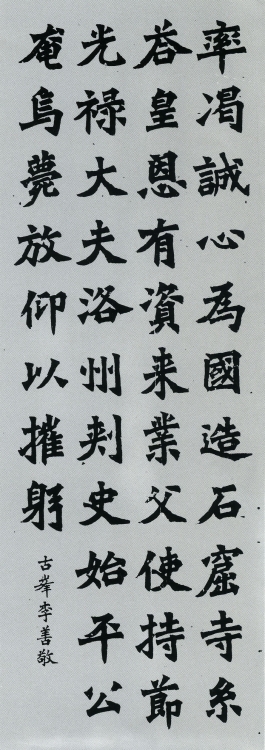 率渴誠心為國造石窟寺糸
荅皇恩有資来業父使持節
光禄大夫洛州刾史始平公
奄焉薨放仰以摧躬
古峯李善敬